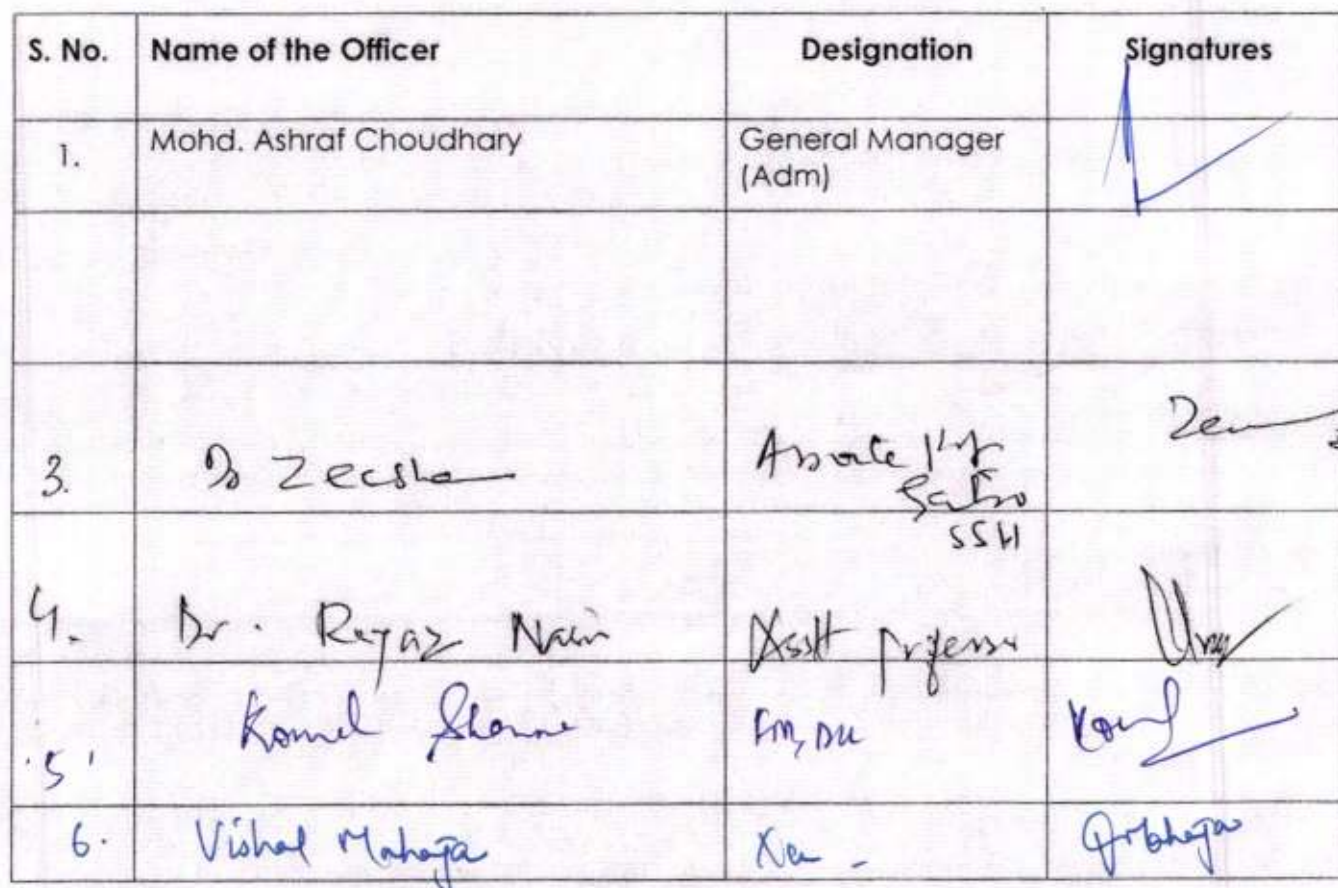 S. No. Name of the Officer Designation Signatures
1. Mohd. Ashraf Choudhary General Manager
(Adm)
3. Dr Zeesha Associate Prof
Gastro
SSH
4. Dr. Reyaz Nain Asstt Professor
5. Komal Sharma
6. Vishal Mahaja Xen